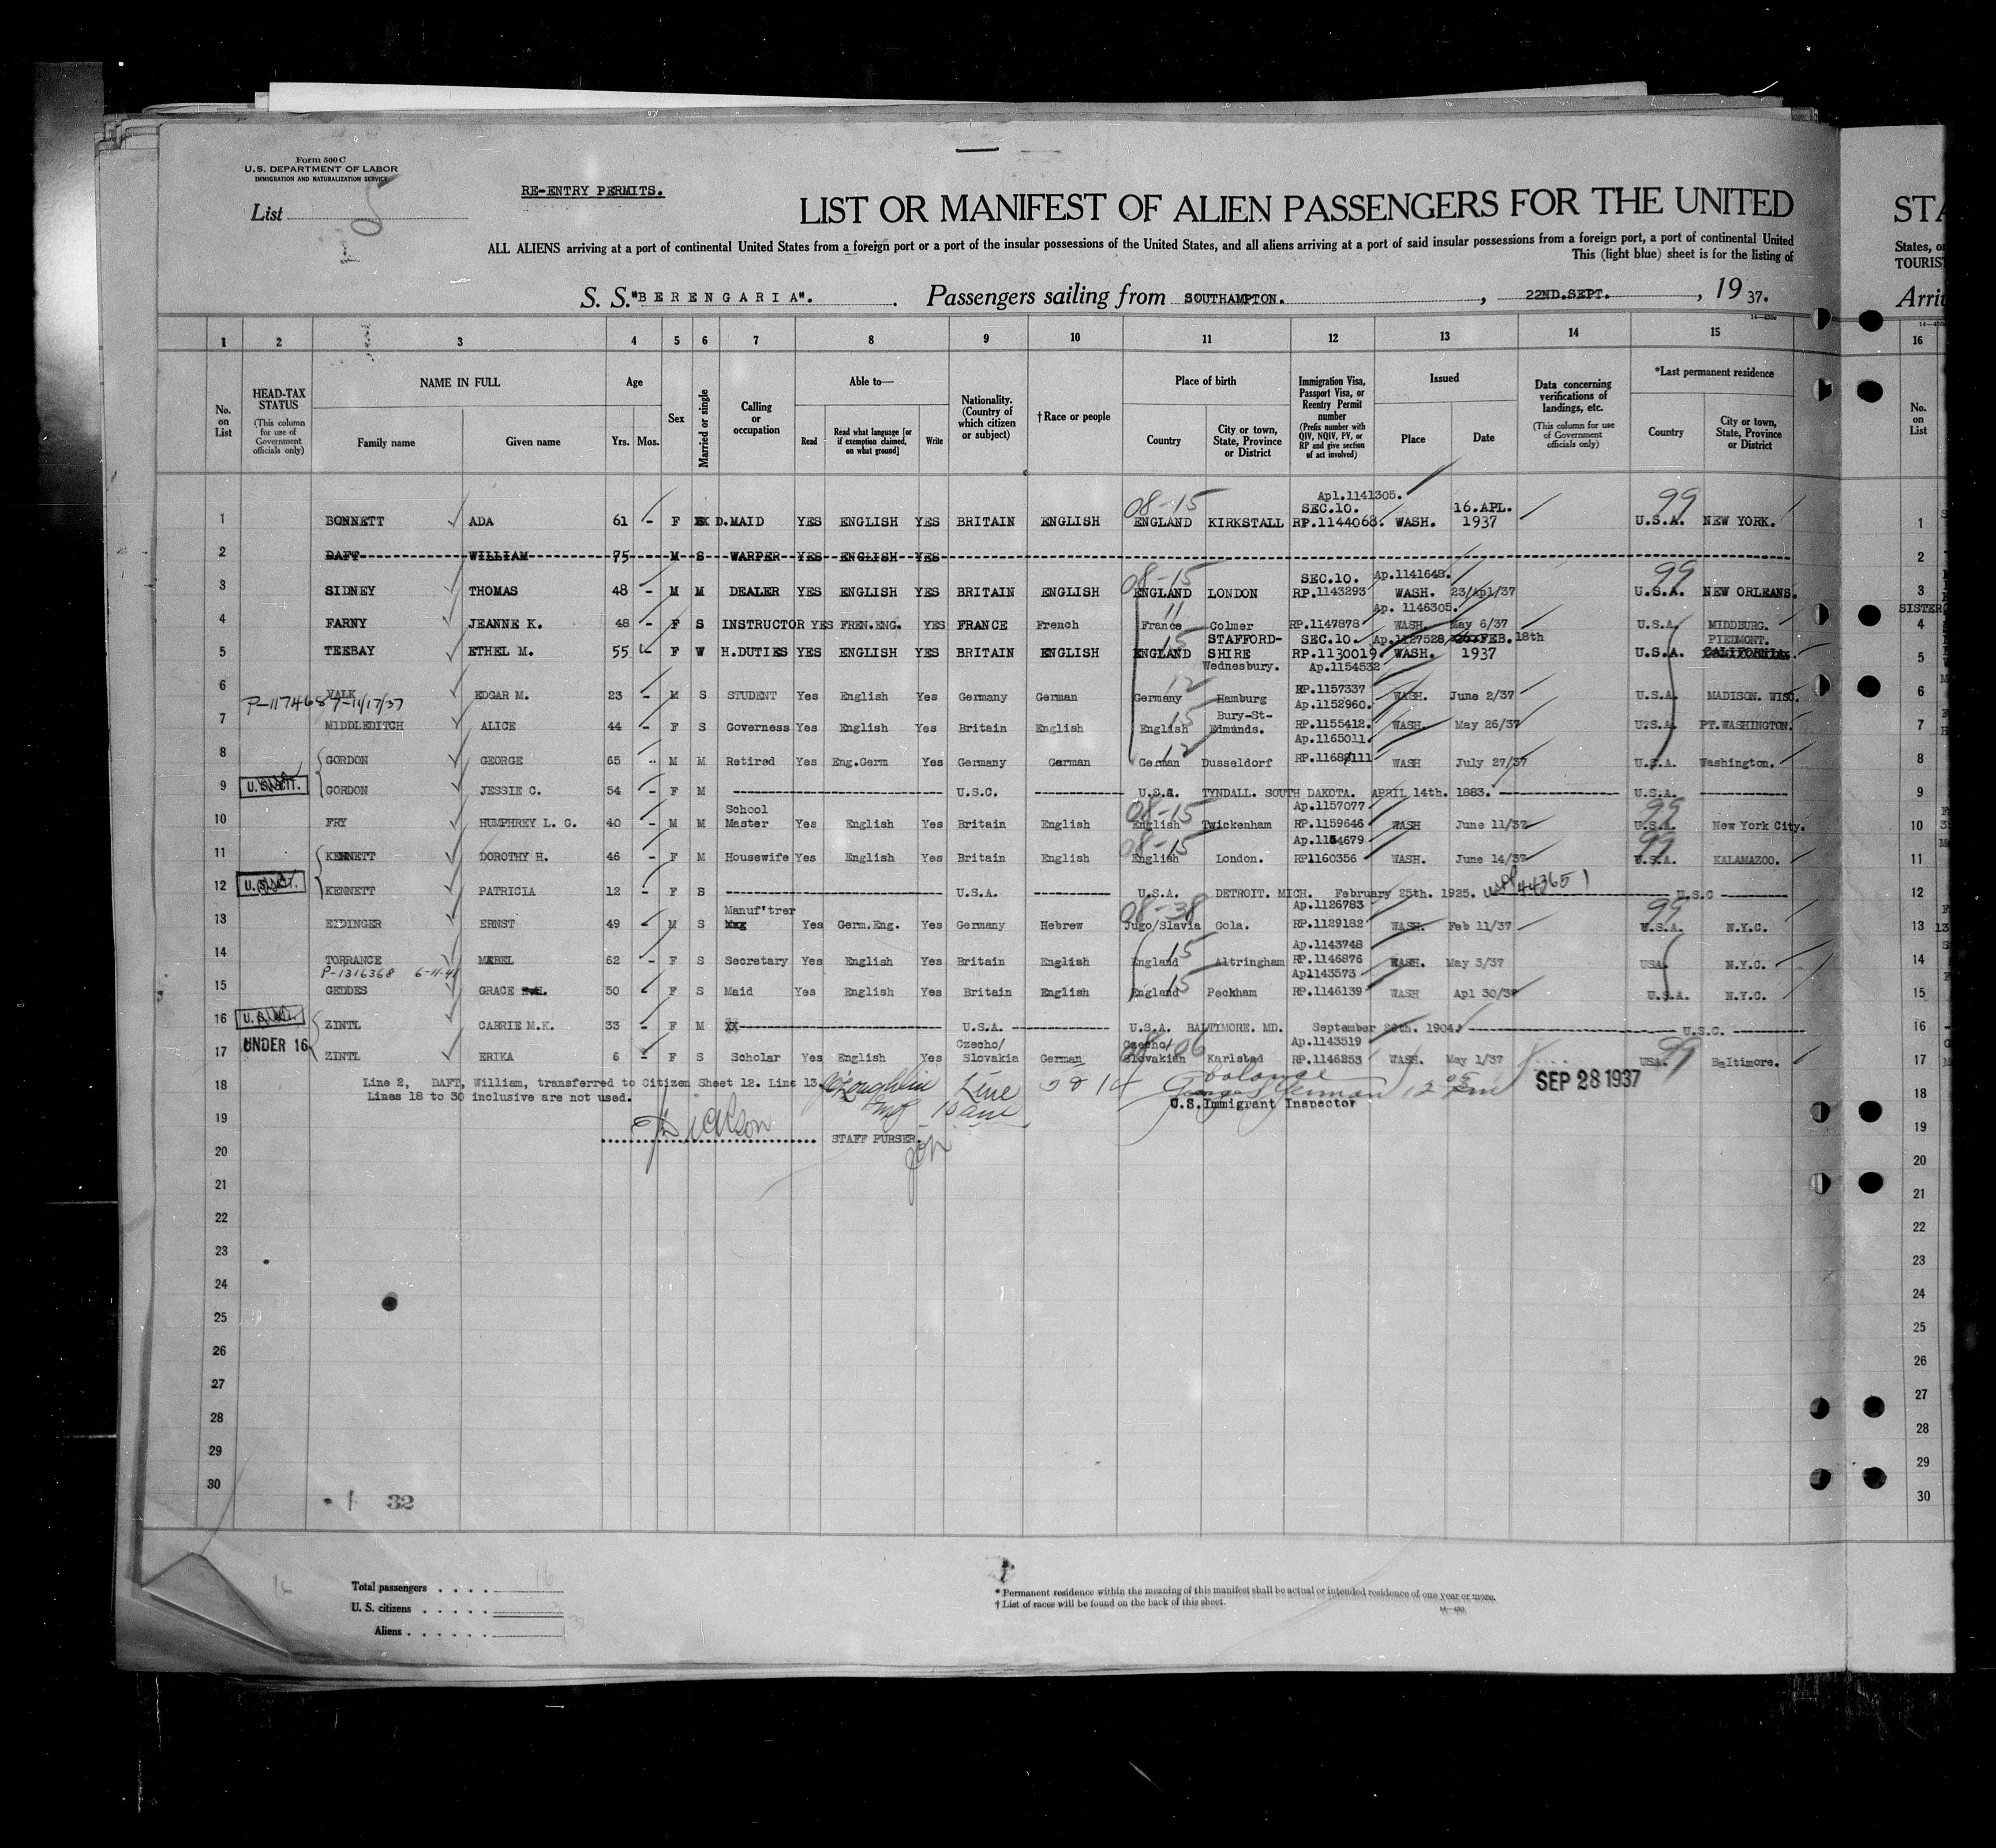 Form 500 C
U.S. DEPARTMENT OF LABOR
IMMIGRATION AND NATURALIZATION SERVICE
List
RE-ENTRY PERMITS.
LIST OR MANIFEST OF ALIEN PASSENGERS FOR THE UNITED
STA
ALL ALIENS arriving at a port of continental United States from a foreign port or a port of the insular possessions of the United States, and all aliens arriving at a port of said insular possessions from a foreign port, a port of continental United
States, o
This (light blue) sheet is for the listing of
TOURIST
S. S. "BERENGARIA". Passengers sailing from SOUTHAMPTON. , 22ND.SEPT. , 19 37.
Arri
1 2 3 4 5 6 7 8 9 10 11 12 13 14 15 16
No. on List
HEAD-TAX STATUS (This column for use of Government officials only)
NAME IN FULL
Family name Given name
Age
Yrs. Mos.
Sex
Married or single
Calling or occupation
Able to—
Read Read what language [or if exemption claimed, on what ground] Write
Nationality. (Country of which citizen or subject)
†Race or people
Place of birth
Country City or town, State, Province or District
Immigration Visa, Passport Visa, or Reentry Permit number (Prefix number with QIV, NQIV, PV, or RP and give section of act involved)
Issued
Place Date
Data concerning verifications of landings, etc. (This column for use of Government officials only)
*Last permanent residence
Country City or town, State, Province or District
No. on List
08-15 Apl.1141305. 99
SEC.10. 16.APL.
1 BONNETT ADA 61 - F D.MAID YES ENGLISH YES BRITAIN ENGLISH ENGLAND KIRKSTALL RP.1144068. WASH. 1937 U.S.A. NEW YORK. 1
2 DAFT WILLIAM 75 M S WARPER YES ENGLISH YES 2
08-15 SEC.10. Ap.1141648. 99
3 SIDNEY THOMAS 48 - M M DEALER YES ENGLISH YES BRITAIN ENGLISH ENGLAND LONDON RP.1143293 WASH. 23/Apl/37 U.S.A. NEW ORLEANS. 3
11 Ap. 1146305. SISTER
4 FARNY JEANNE K. 48 - F S INSTRUCTOR YES FREN.ENG. YES FRANCE French France Colmer RP.1147878 WASH. May 6/37 U.S.A. MIDDBURG. 4
15 STAFFORD- SEC.10. Ap.1127528 FEB.18th PIEDMONT.
5 TEEBAY ETHEL M. 55 - F W H.DUTIES YES ENGLISH YES BRITAIN ENGLISH ENGLAND SHIRE RP.1130019. WASH. 1937 U.S.A. CALIFORNIA. 5
Wednesbury. Ap.1154532
6 VALK EDGAR M. 23 - M S STUDENT Yes English Yes Germany German Germany 12 Hamburg RP.1157337 WASH. June 2/37 U.S.A. MADISON. WISC. 6
P-1174687-11/17/37
Bury-St- Ap.1152960.
7 MIDDLEDITCH ALICE 44 - F S Governess Yes English Yes Britain English English 15 Edmunds. RP.1155412. WASH. May 26/37 U.S.A. PT.WASHINGTON. 7
12 Ap.1165011
8 GORDON GEORGE 65 M M Retired Yes Eng.Germ Yes Germany German German Dusseldorf RP.1168111 WASH July 27/37 U.S.A. Washington. 8
9 GORDON JESSIE C. 54 - F M U.S.C. U.S.A. TYNDALL. SOUTH DAKOTA. APRIL 14th. 1883. U.S.A. 9
School 08-15 Ap.1157077 99
10 FRY HUMPHREY L. G. 40 - M M Master Yes English Yes Britain English English Twickenham RP.1159646 WASH June 11/37 U.S.A. New York City. 10
08-15 Ap.1154679 99
11 KENNETT DOROTHY H. 46 - F M Housewife Yes English Yes Britain English English London. RP1160356 WASH. June 14/37 U.S.A. KALAMAZOO. 11
12 KENNETT PATRICIA 12 - F S U.S.A. U.S.A. DETROIT. MICH. February 25th. 1925. U.S.C 12
Manuf'trer 08-38 Ap.1126783 99
13 EIDINGER ERNST 49 - M S Yes Germ.Eng. Yes Germany Hebrew Jugo/Slavia Gola. RP.1129182 WASH. Feb 11/37 U.S.A. N.Y.C. 13
Ap.1143748
14 TORRANCE MABEL 62 - F S Secretary Yes English Yes Britain English England 15 Altringham RP.1146876 WASH. May 3/37 USA. N.Y.C. 14
P-1316368 6-11-41 Ap1143573
15 GEDDES GRACE 50 - F S Maid Yes English Yes Britain English England 15 Peckham RP.1146139 WASH Apl 30/37 U.S.A. N.Y.C. 15
16 ZINTL CARRIE M.K. 33 - F M U.S.A. U.S.A. BALTYMORE. MD. September 1904. U.S.C. 16
UNDER 16 Czecho/ Czecho/ Ap.1143519 99
17 ZINTL ERIKA 6 - F S Scholar Yes English Yes Slovakia German Slovakian Karlstad RP.1146253 WASH. May 1/37 USA. Baltimore. 17
18 Line 2, DAFT, William, transferred to Citizen Sheet 12. Line 13. Line SEP 28 1937 18
Lines 18 to 30 inclusive are not used.
U.S. Immigrant Inspector
19 19
STAFF PURSER.
20 20
21 21
22 22
23 23
24 24
25 25
26 26
27 27
28 28
29 29
30 30
32
Total passengers . . . . 16
U. S. citizens . . . . .
Aliens . . . . . .
* Permanent residence within the meaning of this manifest shall be actual or intended residence of one year or more.
† List of races will be found on the back of this sheet.
14—430